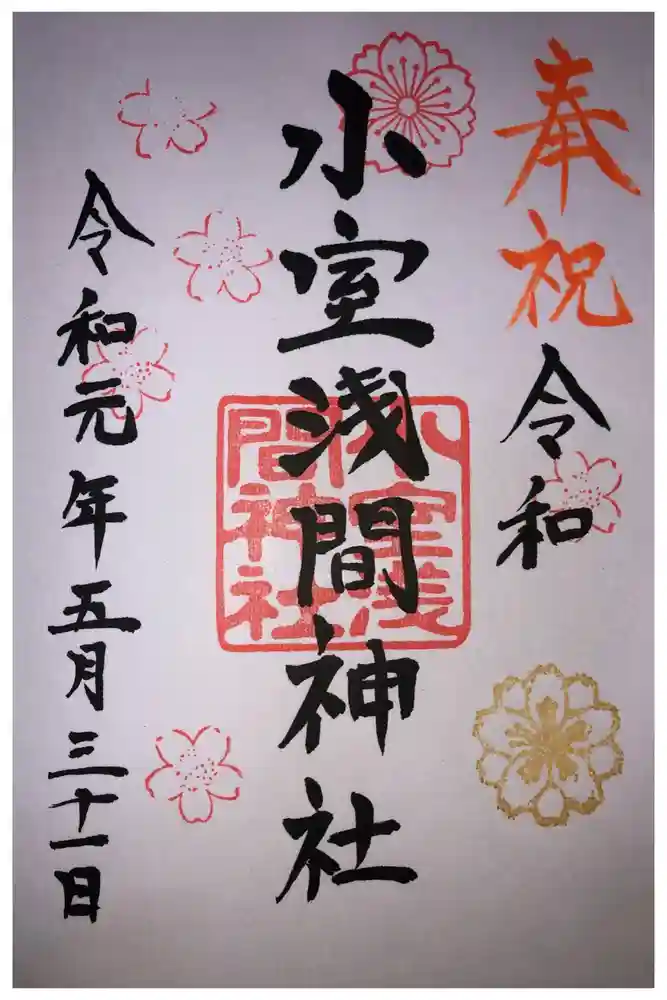 奉祝令和
小室浅間神社
令和元年五月三十一日
小室浅
間神社